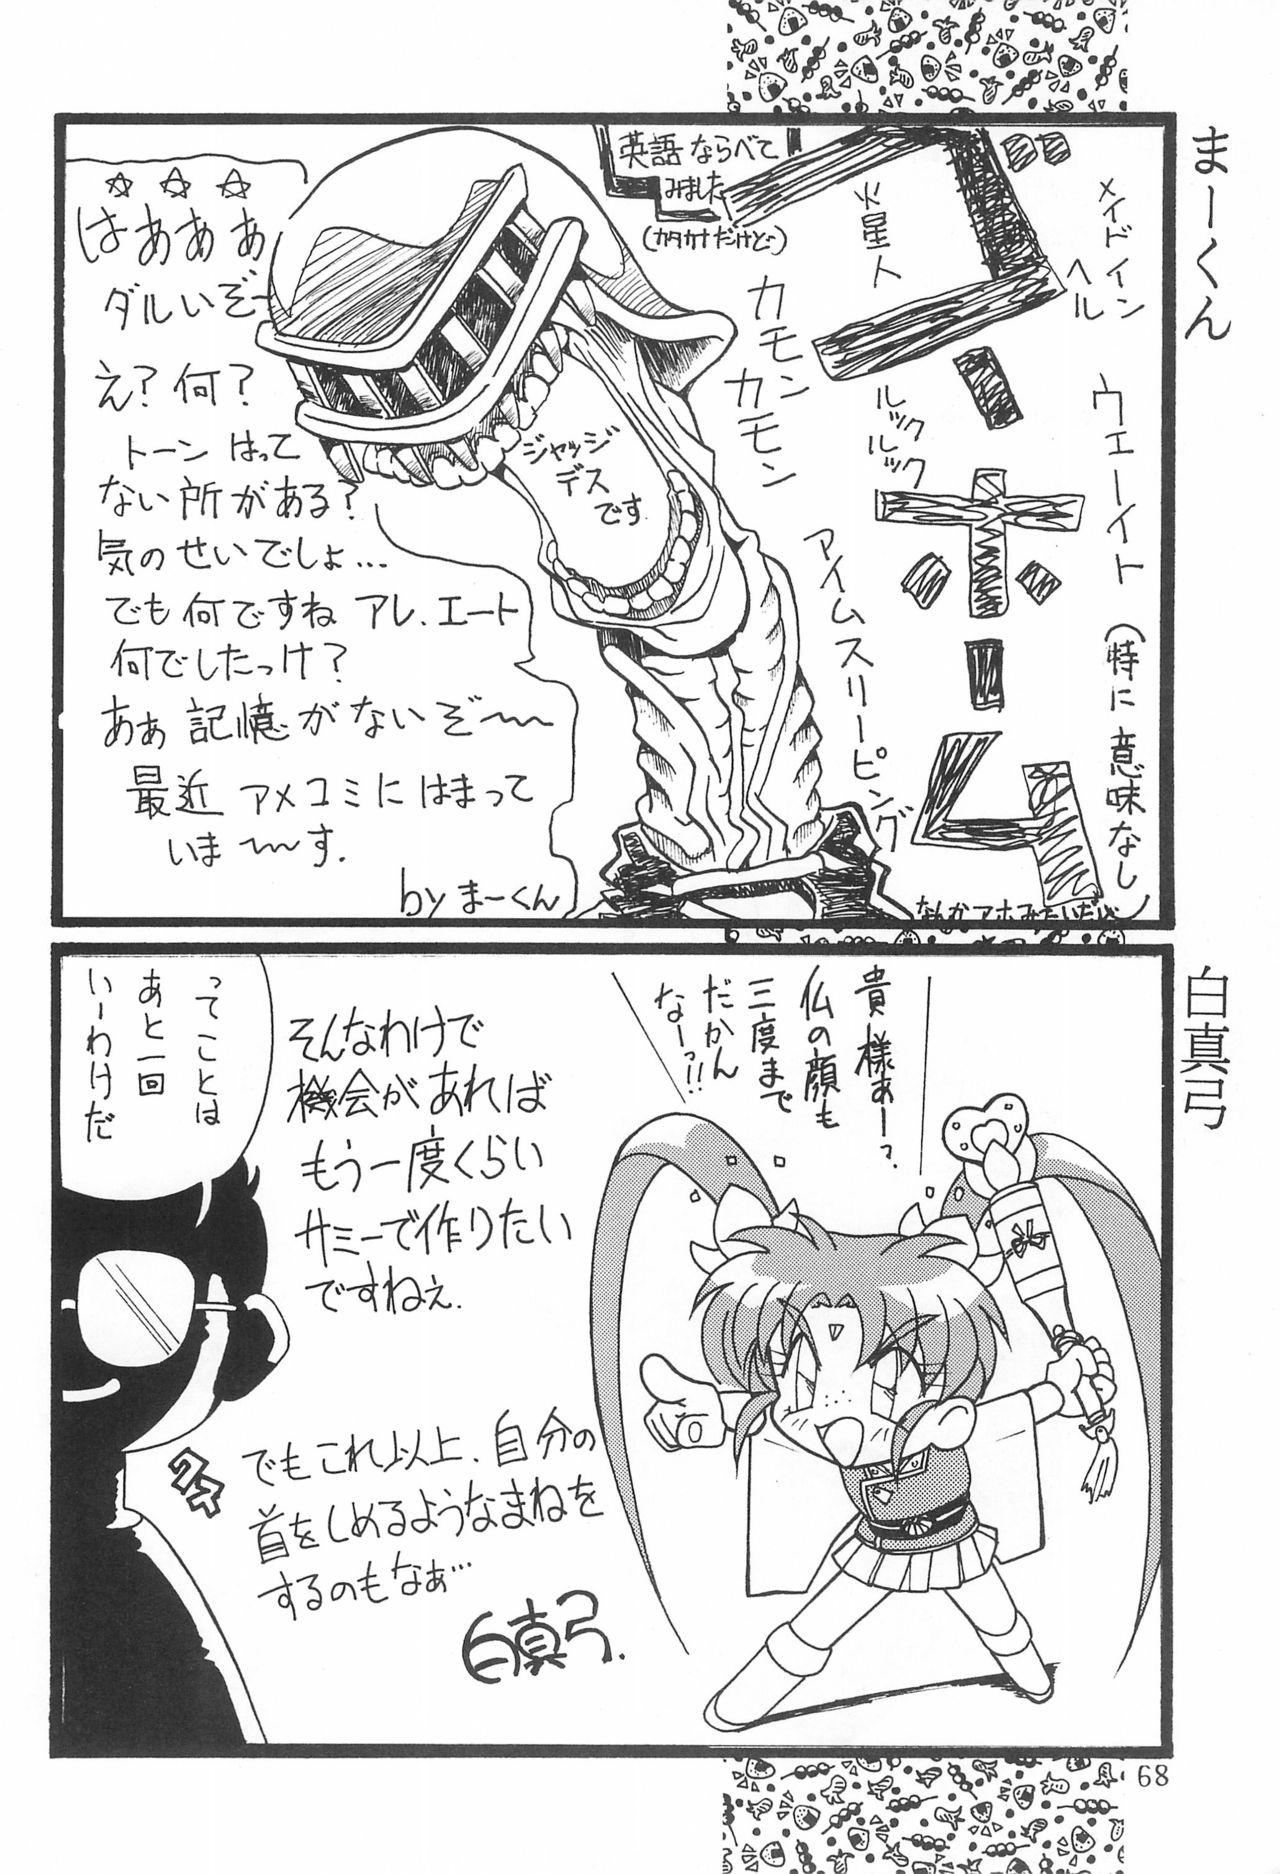 まーくん
英語ならべて
みました
(カタカナだけど…)
メイドイン
ヘル
火星人
カモン
カモン
ルック
ルック
ウェーイト
アイムスリーピング
(特に意味なし)
なんかアホみたいだし
ジャッジ
デス
です
☆☆☆
はあああ
ダルいぞ~
え?何?
トーンはって
ない所がある?
気のせいでしょ…
でも何ですね アレ、エート
何でしたっけ?
あぁ記憶がないぞ~~
最近 アメコミにはまって
いま~~す.
by まーくん
白真弓
貴様あーっ
仏の顔も
三度まで
だかん
なーっ!!
そんなわけで
機会があれば
もう一度くらい
サミーで作りたい
ですねぇ.
でもこれ以上、自分の
首をしめるようなまねを
するのもなぁ…
白真弓.
ってことは
あと一回
いーわけだ
クス
68